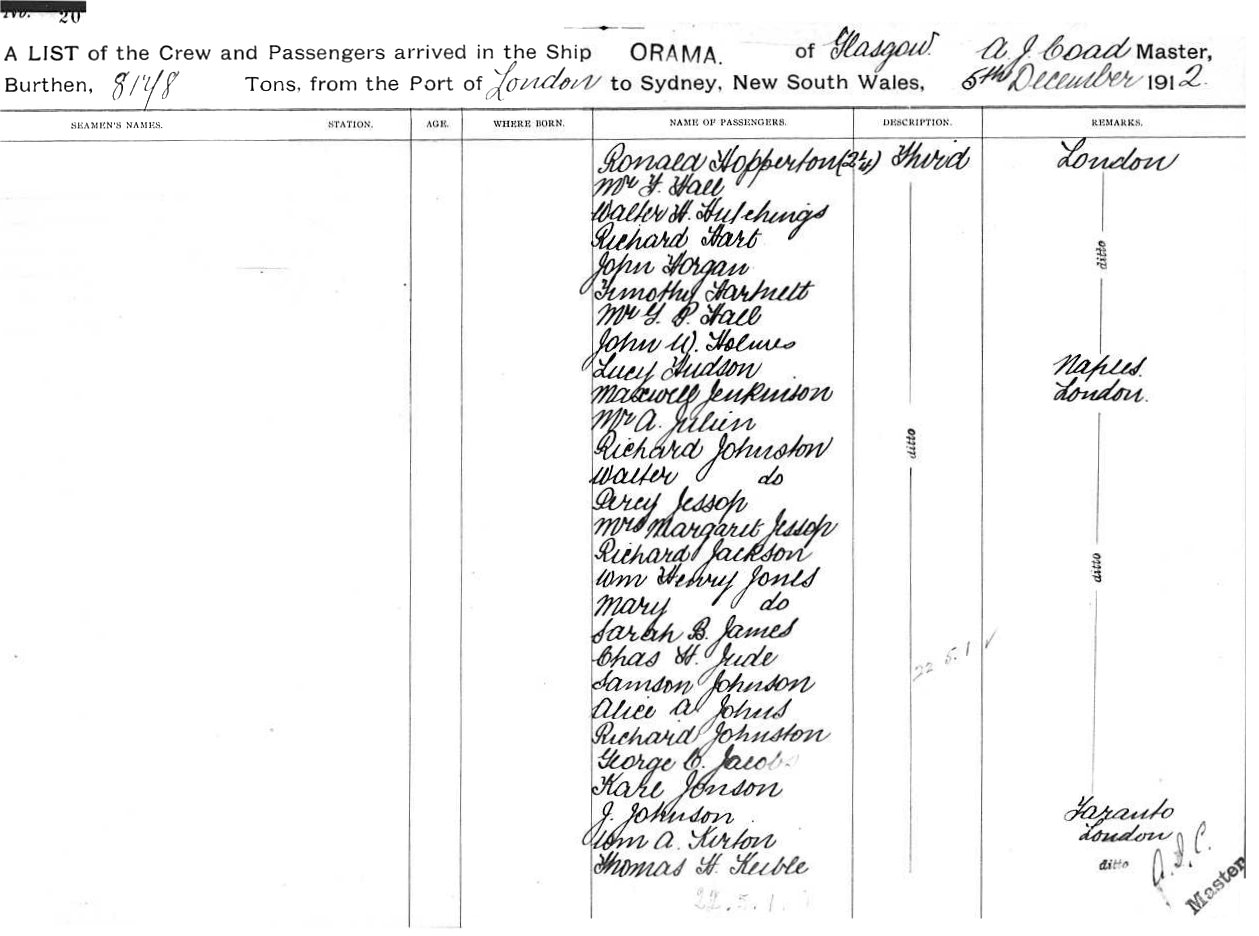 No. 20
A LIST of the Crew and Passengers arrived in the Ship ORAMA. of Glasgow. A. J. Coad Master,
Burthen, 8148 Tons, from the Port of London to Sydney, New South Wales, 5th December 1912.
SEAMEN'S NAMES. STATION. AGE. WHERE BORN. NAME OF PASSENGERS. DESCRIPTION. REMARKS.
Ronald Hopperton (2¼) Third London
Mr F. Hall
Walter H. Hutchings
Richard Hart
John Horgan ditto
Timothy Hartnett
Mr G. P. Hall
John W. Holmes
Lucy Hudson Naples.
Maxwell Jenkinson London.
Mr A. Julien
Richard Johnston ditto
Walter do
Percy Jessop
Mrs Margaret Jessop
Richard Jackson
Wm Henry Jones ditto
Mary do
Sarah B. James
Chas H. Jude 22 5.1 ✓
Samson Johnson
Alice A Johns
Richard Johnston
George C. Jacobs
Karl Jonson
J. Johnson Taranto
Wm A. Kirton London
Thomas H. Keeble ditto A.J.C.
22.5.1 Master